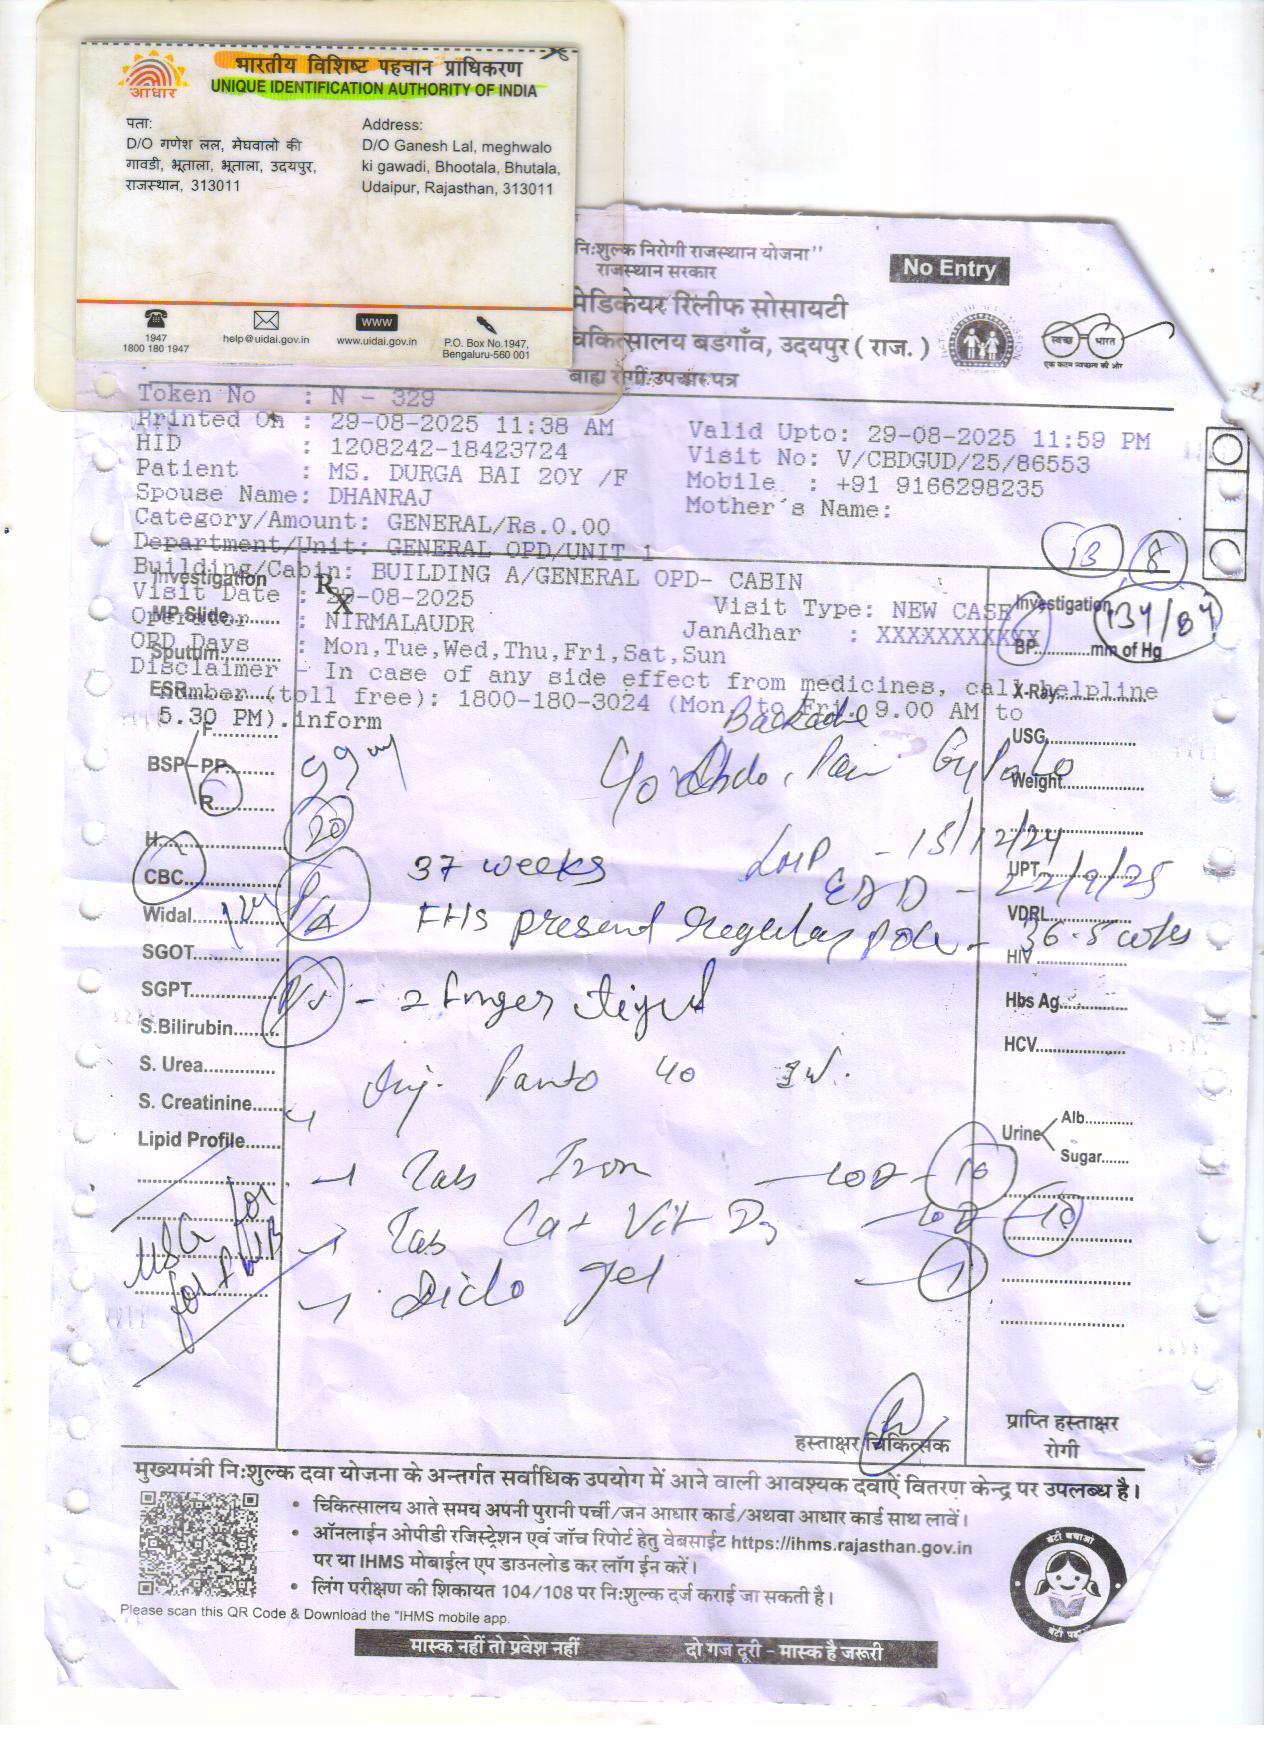 भारतीय विशिष्ट पहचान प्राधिकरण
UNIQUE IDENTIFICATION AUTHORITY OF INDIA
आधार
पता:
D/O गणेश लल, मेघवालो की
गावडी, भूताला, भूताला, उदयपुर,
राजस्थान, 313011
Address:
D/O Ganesh Lal, meghwalo
ki gawadi, Bhootala, Bhutala,
Udaipur, Rajasthan, 313011
1947
1800 180 1947
help@uidai.gov.in
www
www.uidai.gov.in
P.O. Box No.1947,
Bengaluru-560 001
निःशुल्क निरोगी राजस्थान योजना''
राजस्थान सरकार
No Entry
मेडिकेयर रिलीफ सोसायटी
चिकित्सालय बडगाँव, उदयपुर ( राज. )
बाह्य रोगी उपचार पत्र
स्वच्छ भारत
एक कदम स्वच्छता की ओर
Token No : N - 329
Printed On : 29-08-2025 11:38 AM Valid Upto: 29-08-2025 11:59 PM
HID : 1208242-18423724 Visit No: V/CBDGUD/25/86553
Patient : MS. DURGA BAI 20Y /F Mobile : +91 9166298235
Spouse Name: DHANRAJ Mother's Name:
Category/Amount: GENERAL/Rs.0.00
Department/Unit: GENERAL OPD/UNIT 1
Building/Cabin: BUILDING A/GENERAL OPD- CABIN
Visit Date : 29-08-2025 Visit Type: NEW CASE
Operator : NIRMALAUDR JanAdhar : XXXXXXXXXXX
OPD Days : Mon,Tue,Wed,Thu,Fri,Sat,Sun
Disclaimer - In case of any side effect from medicines, call helpline
number (toll free): 1800-180-3024 (Mon. to Fri. 9.00 AM to
5.30 PM).inform
13 8
134/84
Investigation
Rx
MP Slide
Sputum
ESR
BSP F
PP
R
H
CBC
Widal
SGOT
SGPT
S.Bilirubin
S. Urea
S. Creatinine
Lipid Profile
USG for
for FWB
Investigation
BP mm of Hg
X-Ray
USG
Weight
UPT
VDRL
HIV
Hbs Ag
HCV
Urine Alb
Sugar
Backache
Pain
20
LMP - 15/12/24
37 weeks
EDD - 22/9/25
P/A FHS present regular POG - 36.5 wks
P/V - 2 finger
Inj. Panto 40
Tab Iron - OD - 10
Tab Ca + Vit D3 - OD - 10
Diclo gel - 1
हस्ताक्षर चिकित्सक
प्राप्ति हस्ताक्षर
रोगी
मुख्यमंत्री निःशुल्क दवा योजना के अन्तर्गत सर्वाधिक उपयोग में आने वाली आवश्यक दवाऐं वितरण केन्द्र पर उपलब्ध है।
• चिकित्सालय आते समय अपनी पुरानी पर्ची/जन आधार कार्ड/अथवा आधार कार्ड साथ लावें।
• ऑनलाईन ओपीडी रजिस्ट्रेशन एवं जाँच रिपोर्ट हेतु वेबसाईट https://ihms.rajasthan.gov.in
पर या IHMS मोबाईल एप डाउनलोड कर लॉग ईन करें।
• लिंग परीक्षण की शिकायत 104/108 पर निःशुल्क दर्ज कराई जा सकती है।
Please scan this QR Code & Download the "IHMS mobile app.
बेटी बचाओ
मास्क नहीं तो प्रवेश नहीं दो गज दूरी - मास्क है जरूरी